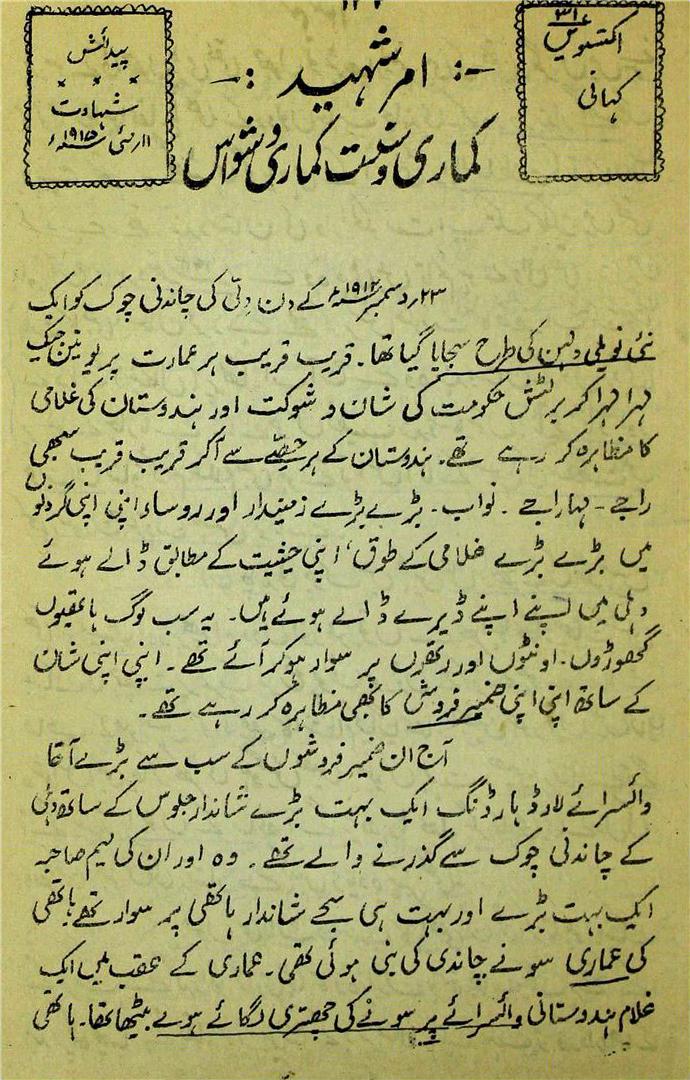 ۳۱
اکتسویں
کہانی
-: امر شہید :-
پیدائش
× × ×
شہادت
۱۱ر مئی ۱۹۱۵ء
کماری وسنت کماری وشواس
۲۳ر دسمبر ۱۹۱۲ء کے دن دلّی کی چاندنی چوک کو ایک
نئی نویلی دلہن کی طرح سجایا گیا تھا۔ قریب قریب ہر عمارت پر یونین جیک
لہرا لہرا کر برٹش حکومت کی شان و شوکت اور ہندوستان کی غلامی
کا مظاہرہ کر رہے تھے۔ ہندوستان کے ہر حصّے سے آکر قریب قریب سبھی
راجے - مہاراجے ۔ نواب ۔ بڑے بڑے زمیندار اور روساء اپنی اپنی گردنوں
میں بڑے بڑے غلامی کے طوق، اپنی حیثیت کے مطابق ڈالے ہوئے
دہلی میں اپنے اپنے ڈیرے ڈالے ہوئے ہیں۔ یہ سب لوگ ہاتھیوں
گھوڑوں۔ اونٹوں اور رتھوں پر سوار ہو کر آئے تھے۔ اپنی اپنی شان
کے ساتھ اپنی اپنی ضمیر فروشی کا بھی مظاہرہ کر رہے تھے۔
آج ان ضمیر فروشوں کے سب سے بڑے آقا
وائسرائے لارڈ ہارڈنگ ایک بہت بڑے شاندار جلوس کے ساتھ دہلی
کے چاندنی چوک سے گذرنے والے تھے۔ وہ اور ان کی میم صاحبہ
ایک بہت بڑے اور بہت ہی سجے شاندار ہاتھی پر سوار تھے ہاتھی
کی عماری سونے چاندی کی بنی ہوئی تھی۔ عماری کے عقب میں ایک
غلام ہندوستانی وائسرائے پر سونے کی چھتری لگائے ہوئے بیٹھا تھا۔ ہاتھی